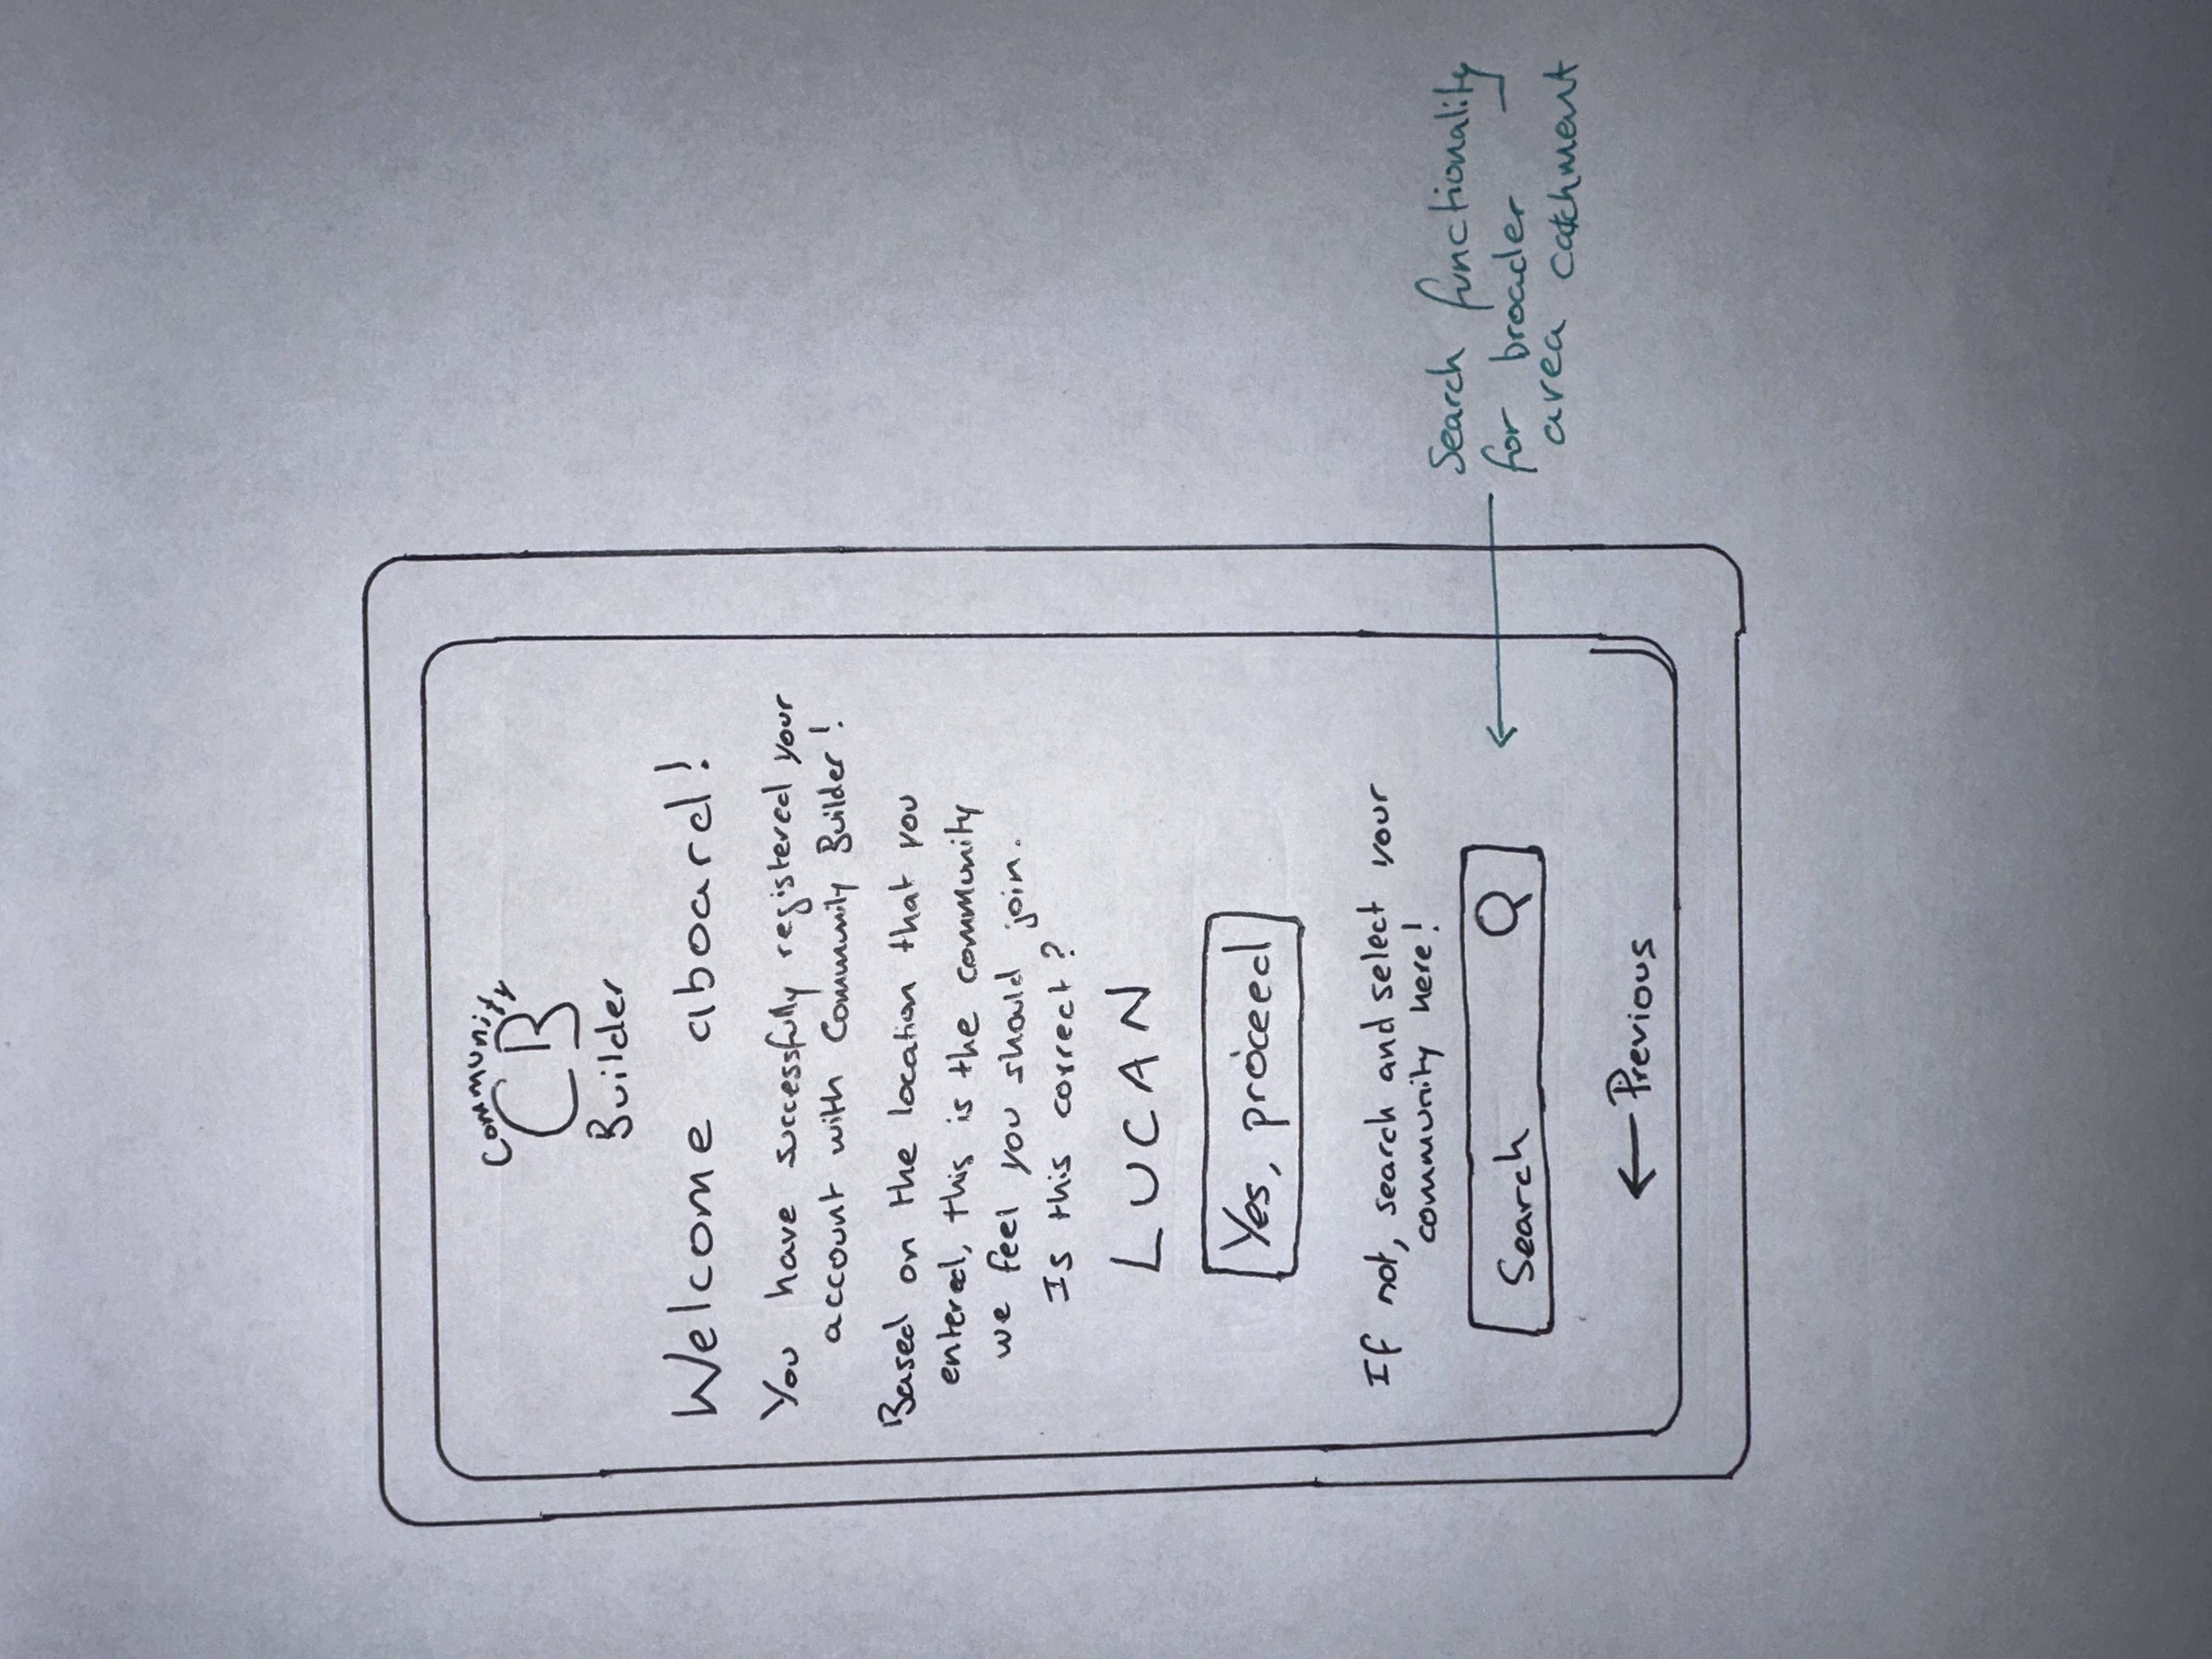 Community
CB
Builder
Welcome aboard!
You have successfully registered your
account with Community Builder!
Based on the location that you
entered, this is the community
we feel you should join.
Is this correct?
LUCAN
Yes, proceed
If not, search and select your
community here!
Search
← Previous
Search functionality
for broader
area catchment